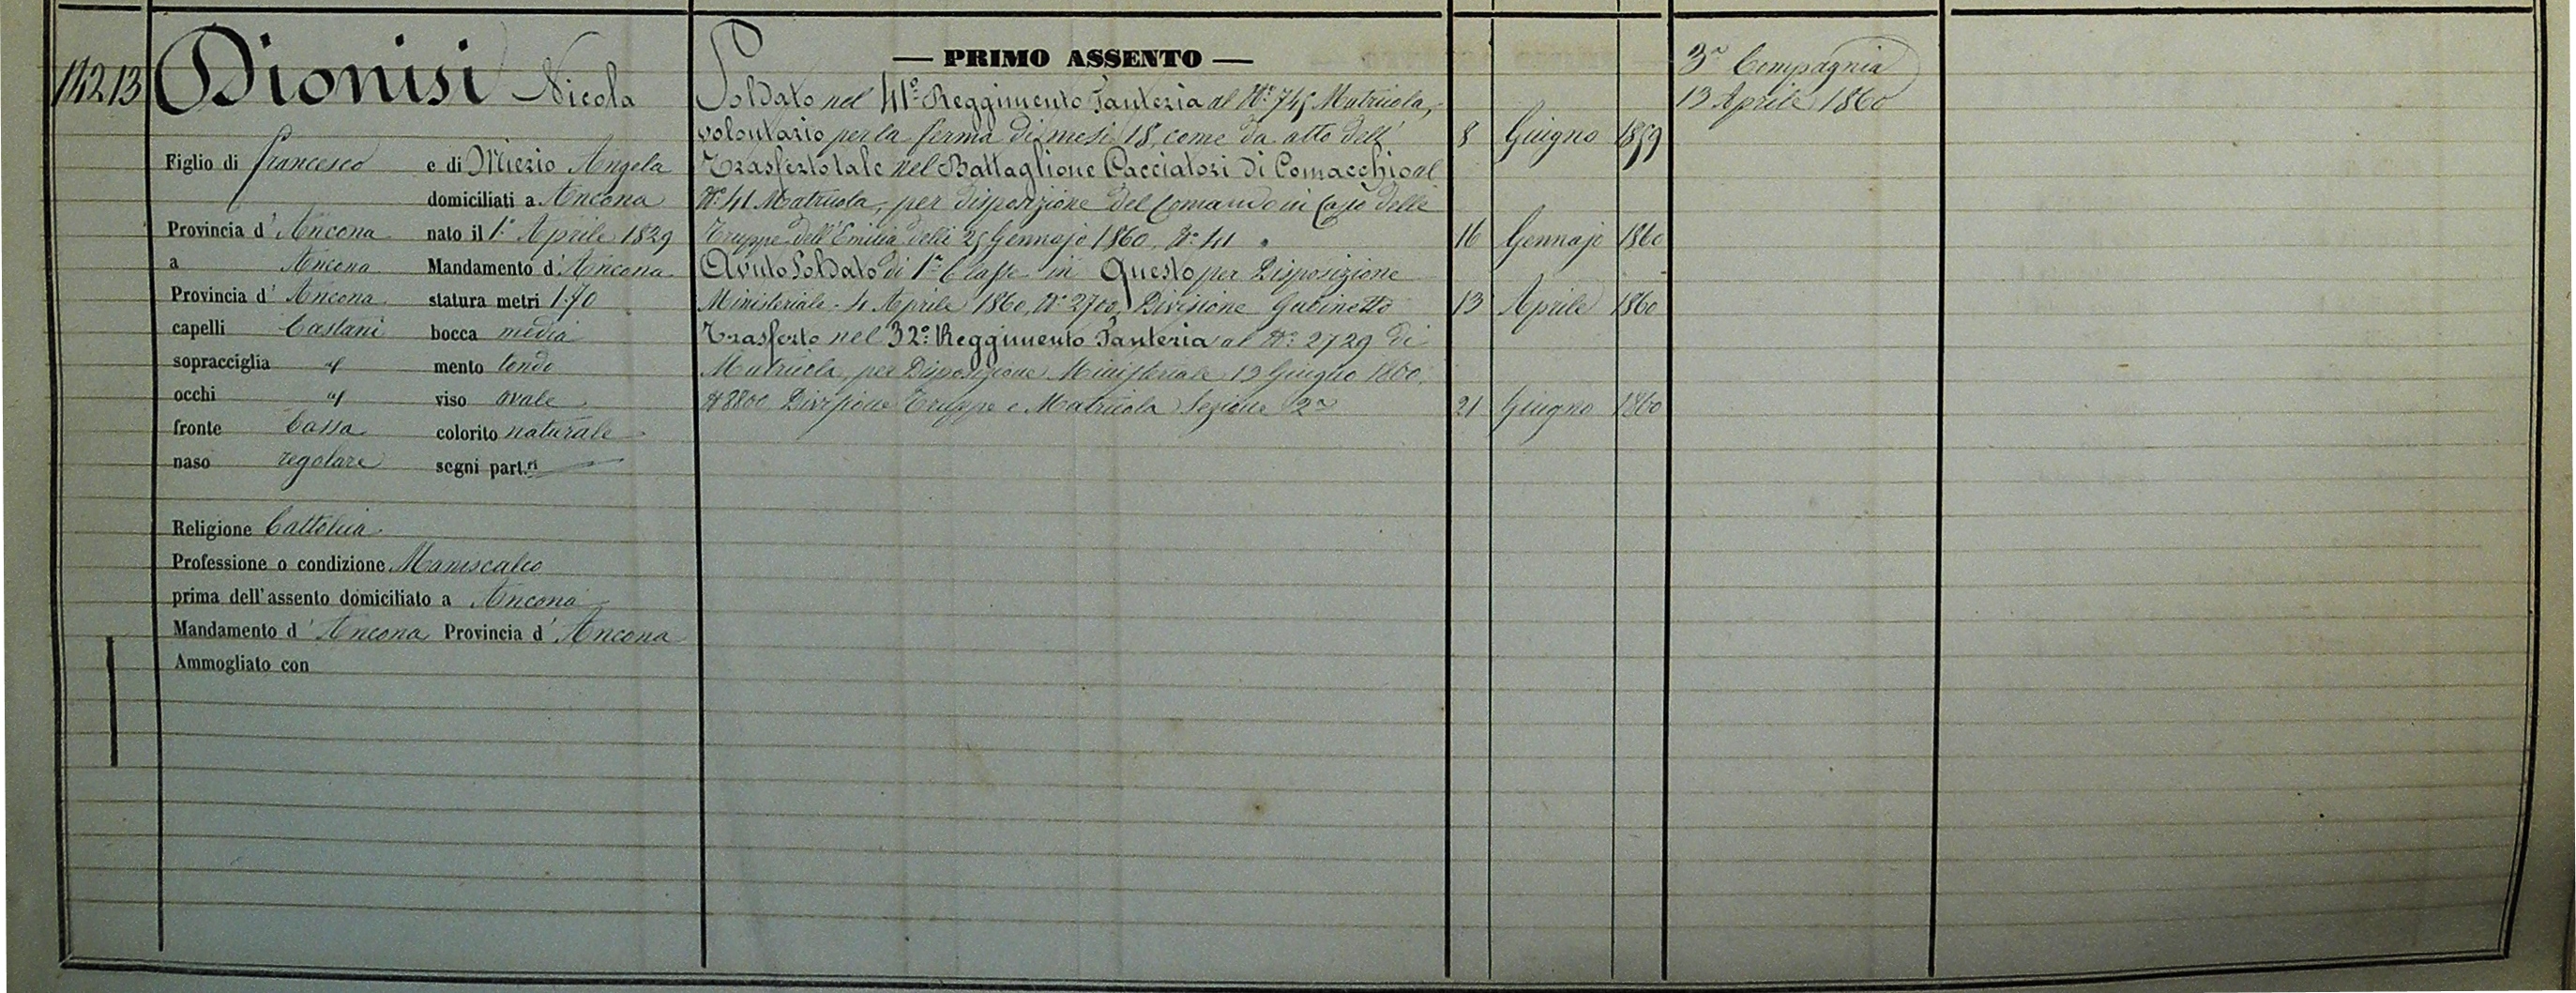 14213 Dionisi Nicola
Figlio di Francesco e di Mierio Angela
domiciliati a Ancona
Provincia d' Ancona nato il 1° Aprile 1829
a Ancona Mandamento d' Ancona
Provincia d' Ancona statura metri 1.70
capelli Castani bocca media
sopracciglia id mento tondo
occhi id viso ovale
fronte bassa colorito naturale
naso regolare segni part.ri
Religione Cattolica
Professione o condizione Maniscalco
prima dell'assento domiciliato a Ancona
Mandamento d' Ancona Provincia d' Ancona
Ammogliato con
— PRIMO ASSENTO —
Soldato nel 41° Reggimento Fanteria al N° 745 Matricola,
volontario per la ferma di mesi 18, come da atto dell' 8 Giugno 1859
Trasferto tale nel Battaglione Cacciatori di Comacchio al
N° 41 Matricola, per disposizione del Comando in Capo delle
Truppe dell'Emilia delli 25 Gennajo 1860, N° 411 16 Gennajo 1860
Avuto Soldato di 1a Classe in Questo per Disposizione
Ministeriale 4 Aprile 1860, N° 2700, Divisione Gabinetto 13 Aprile 1860
Trasferto nel 32° Reggimento Fanteria al N° 2729 di
Matricola per Disposizione Ministeriale 13 Giugno 1860.
N 8800 Divisione Truppe e Matricola Sezione 2a 21 Giugno 1860
3a Compagnia
13 Aprile 1860